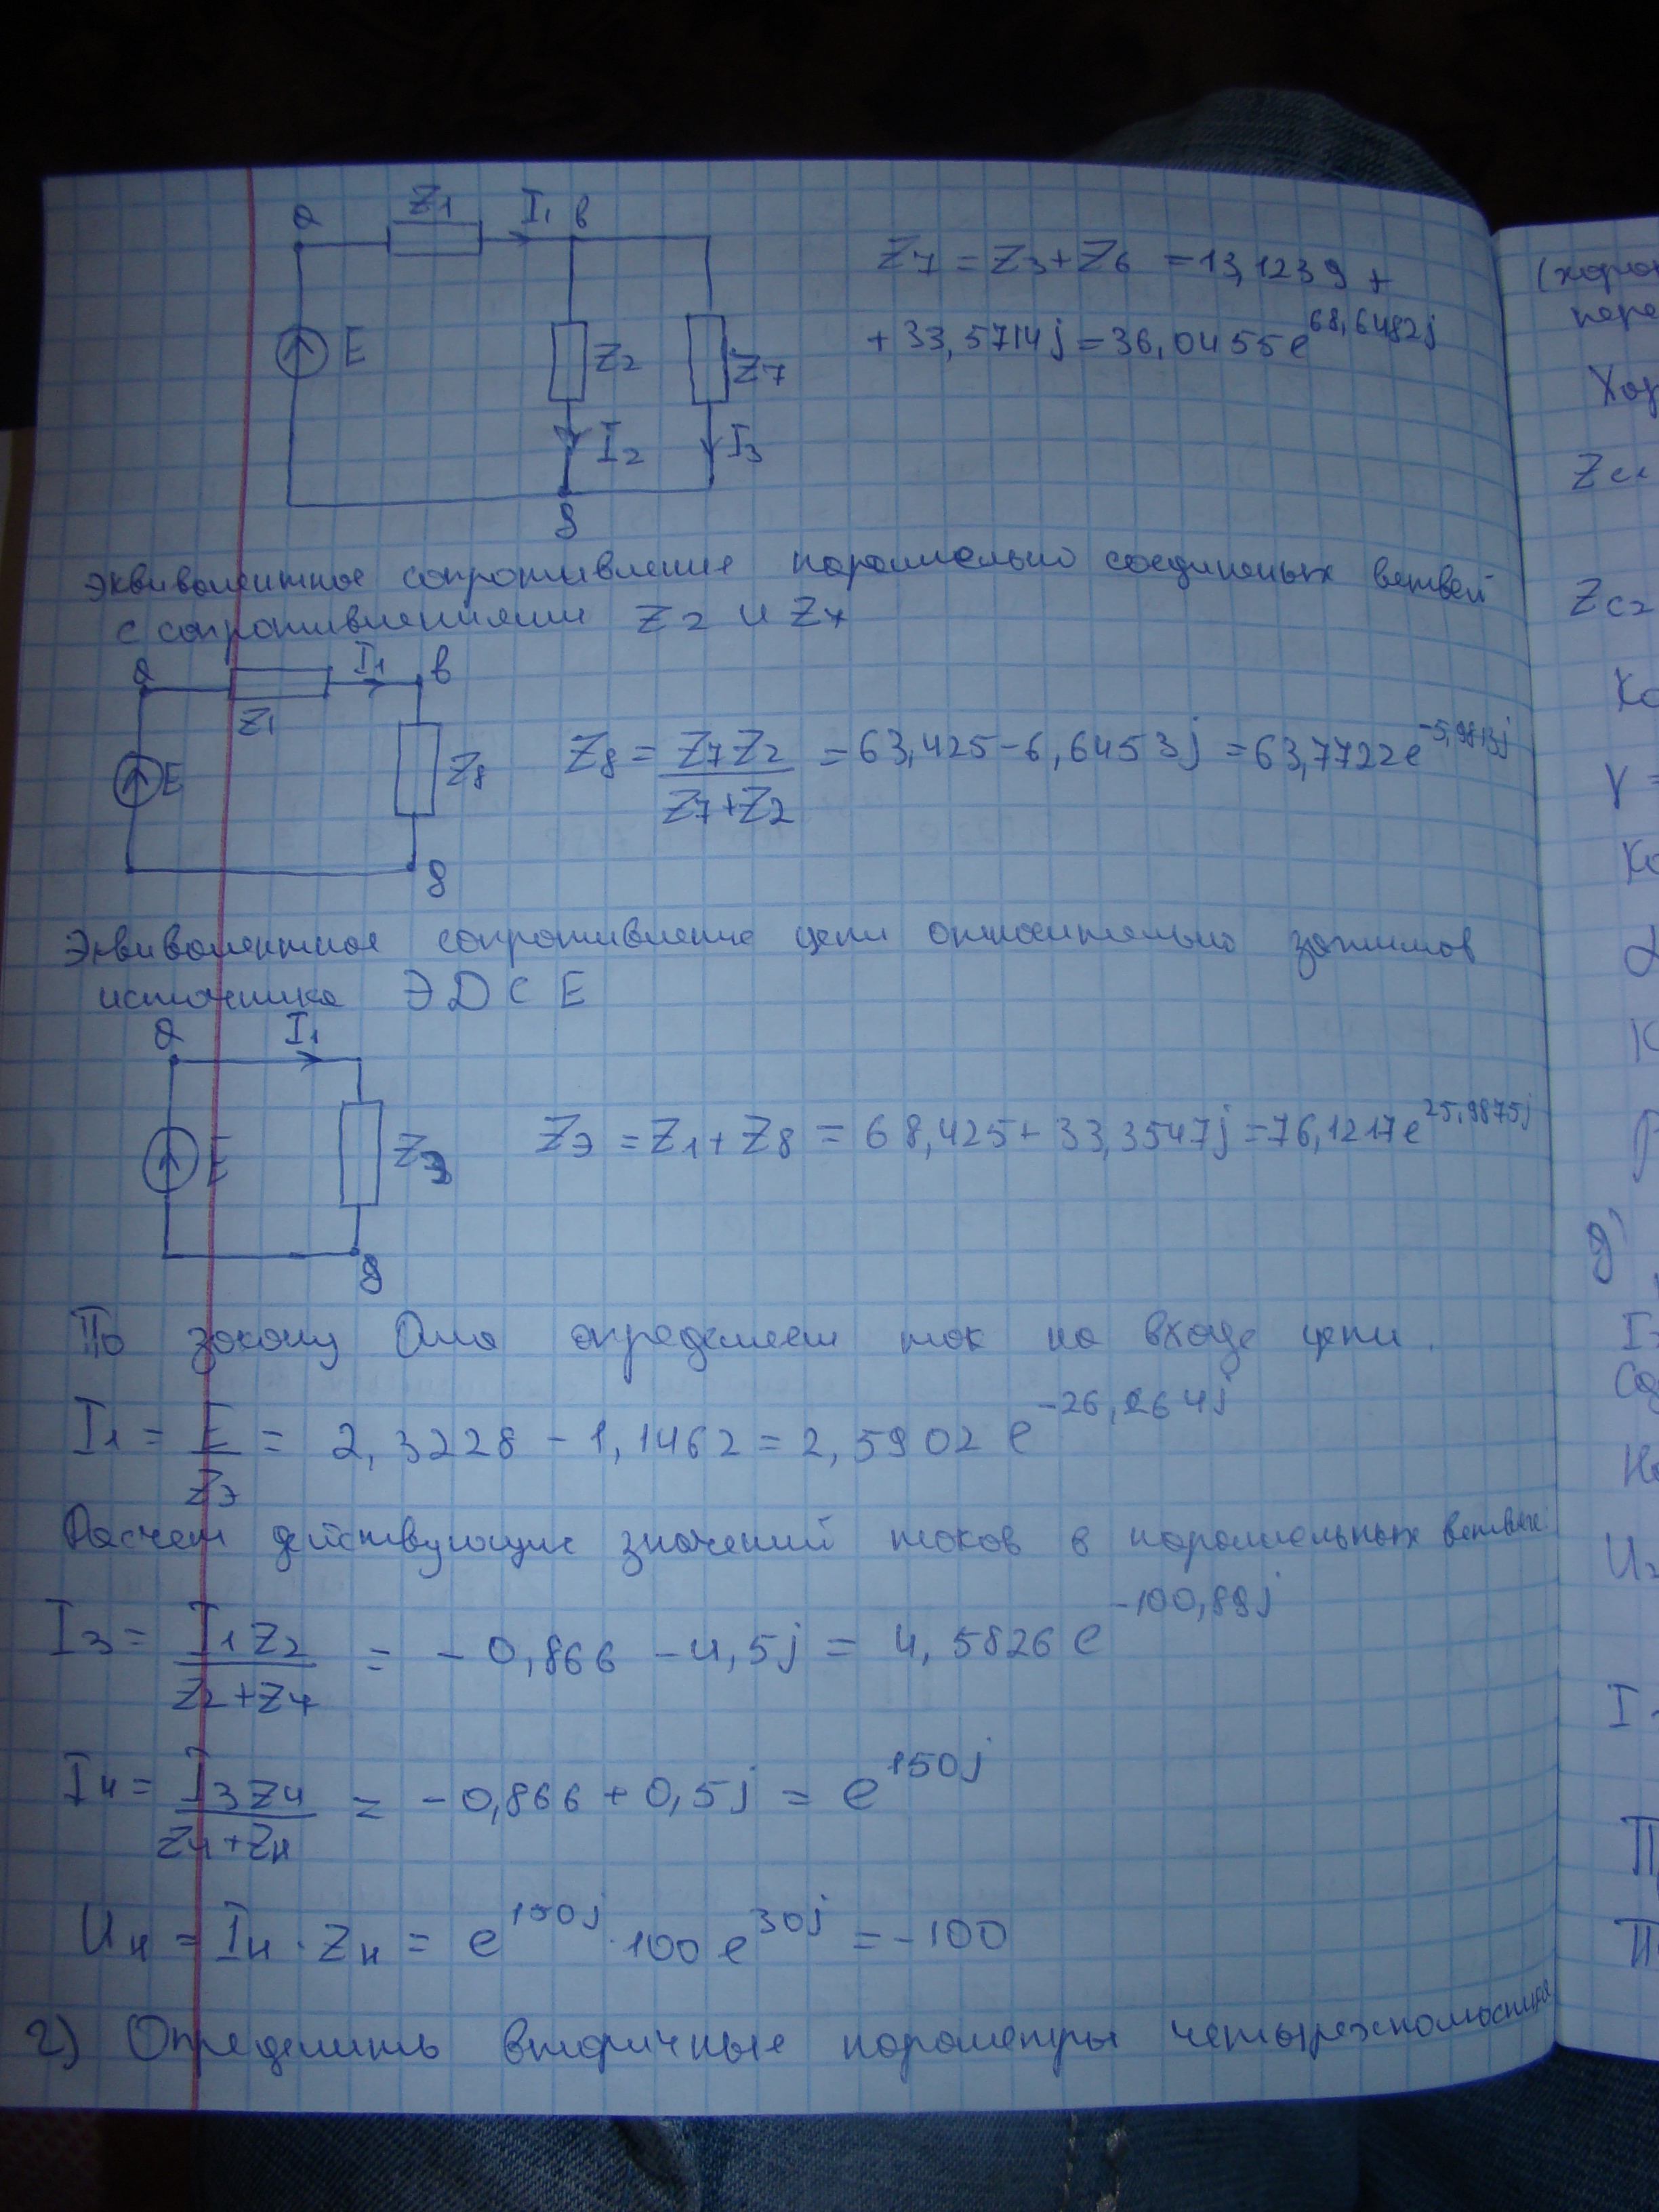 a Z1 I1 в
E Z2 Z7
I2 I3
д
Z7 = Z3 + Z6 = 13,1239 +
+ 33,5714j = 36,0455e^68,6482j
Эквивалентное сопротивление параллельно соединеных ветвей
с сопротивлениями Z2 и Z7
a Z1 I1 в
E Z8
д
Z8 = Z7Z2 / Z7+Z2 = 63,425 - 6,6453j = 63,7722e^-5,9813j
Эквивалентное сопротивление цепи относительно зажимов
источника ЭДС E
a I1
E ZЭ
д
ZЭ = Z1 + Z8 = 68,425 + 33,3547j = 76,1217e^25,9875j
По закону Ома определяем ток на входе цепи.
I1 = E / ZЭ = 2,3228 - 1,1462 = 2,5902 e^-26,2641j
Расчет действующие значений токов в параллельных ветвях
I3 = I1Z2 / Z2+Z7 = -0,866 - 4,5j = 4,5826 e^-100,89j
Iн = I3Z4 / Z4+Zн = -0,866 + 0,5j = e^150j
Uн = Iн · Zн = e^150j · 100 e^30j = -100
2) Определить вторичные параметры четырехполюсника
Zc1
Zc2